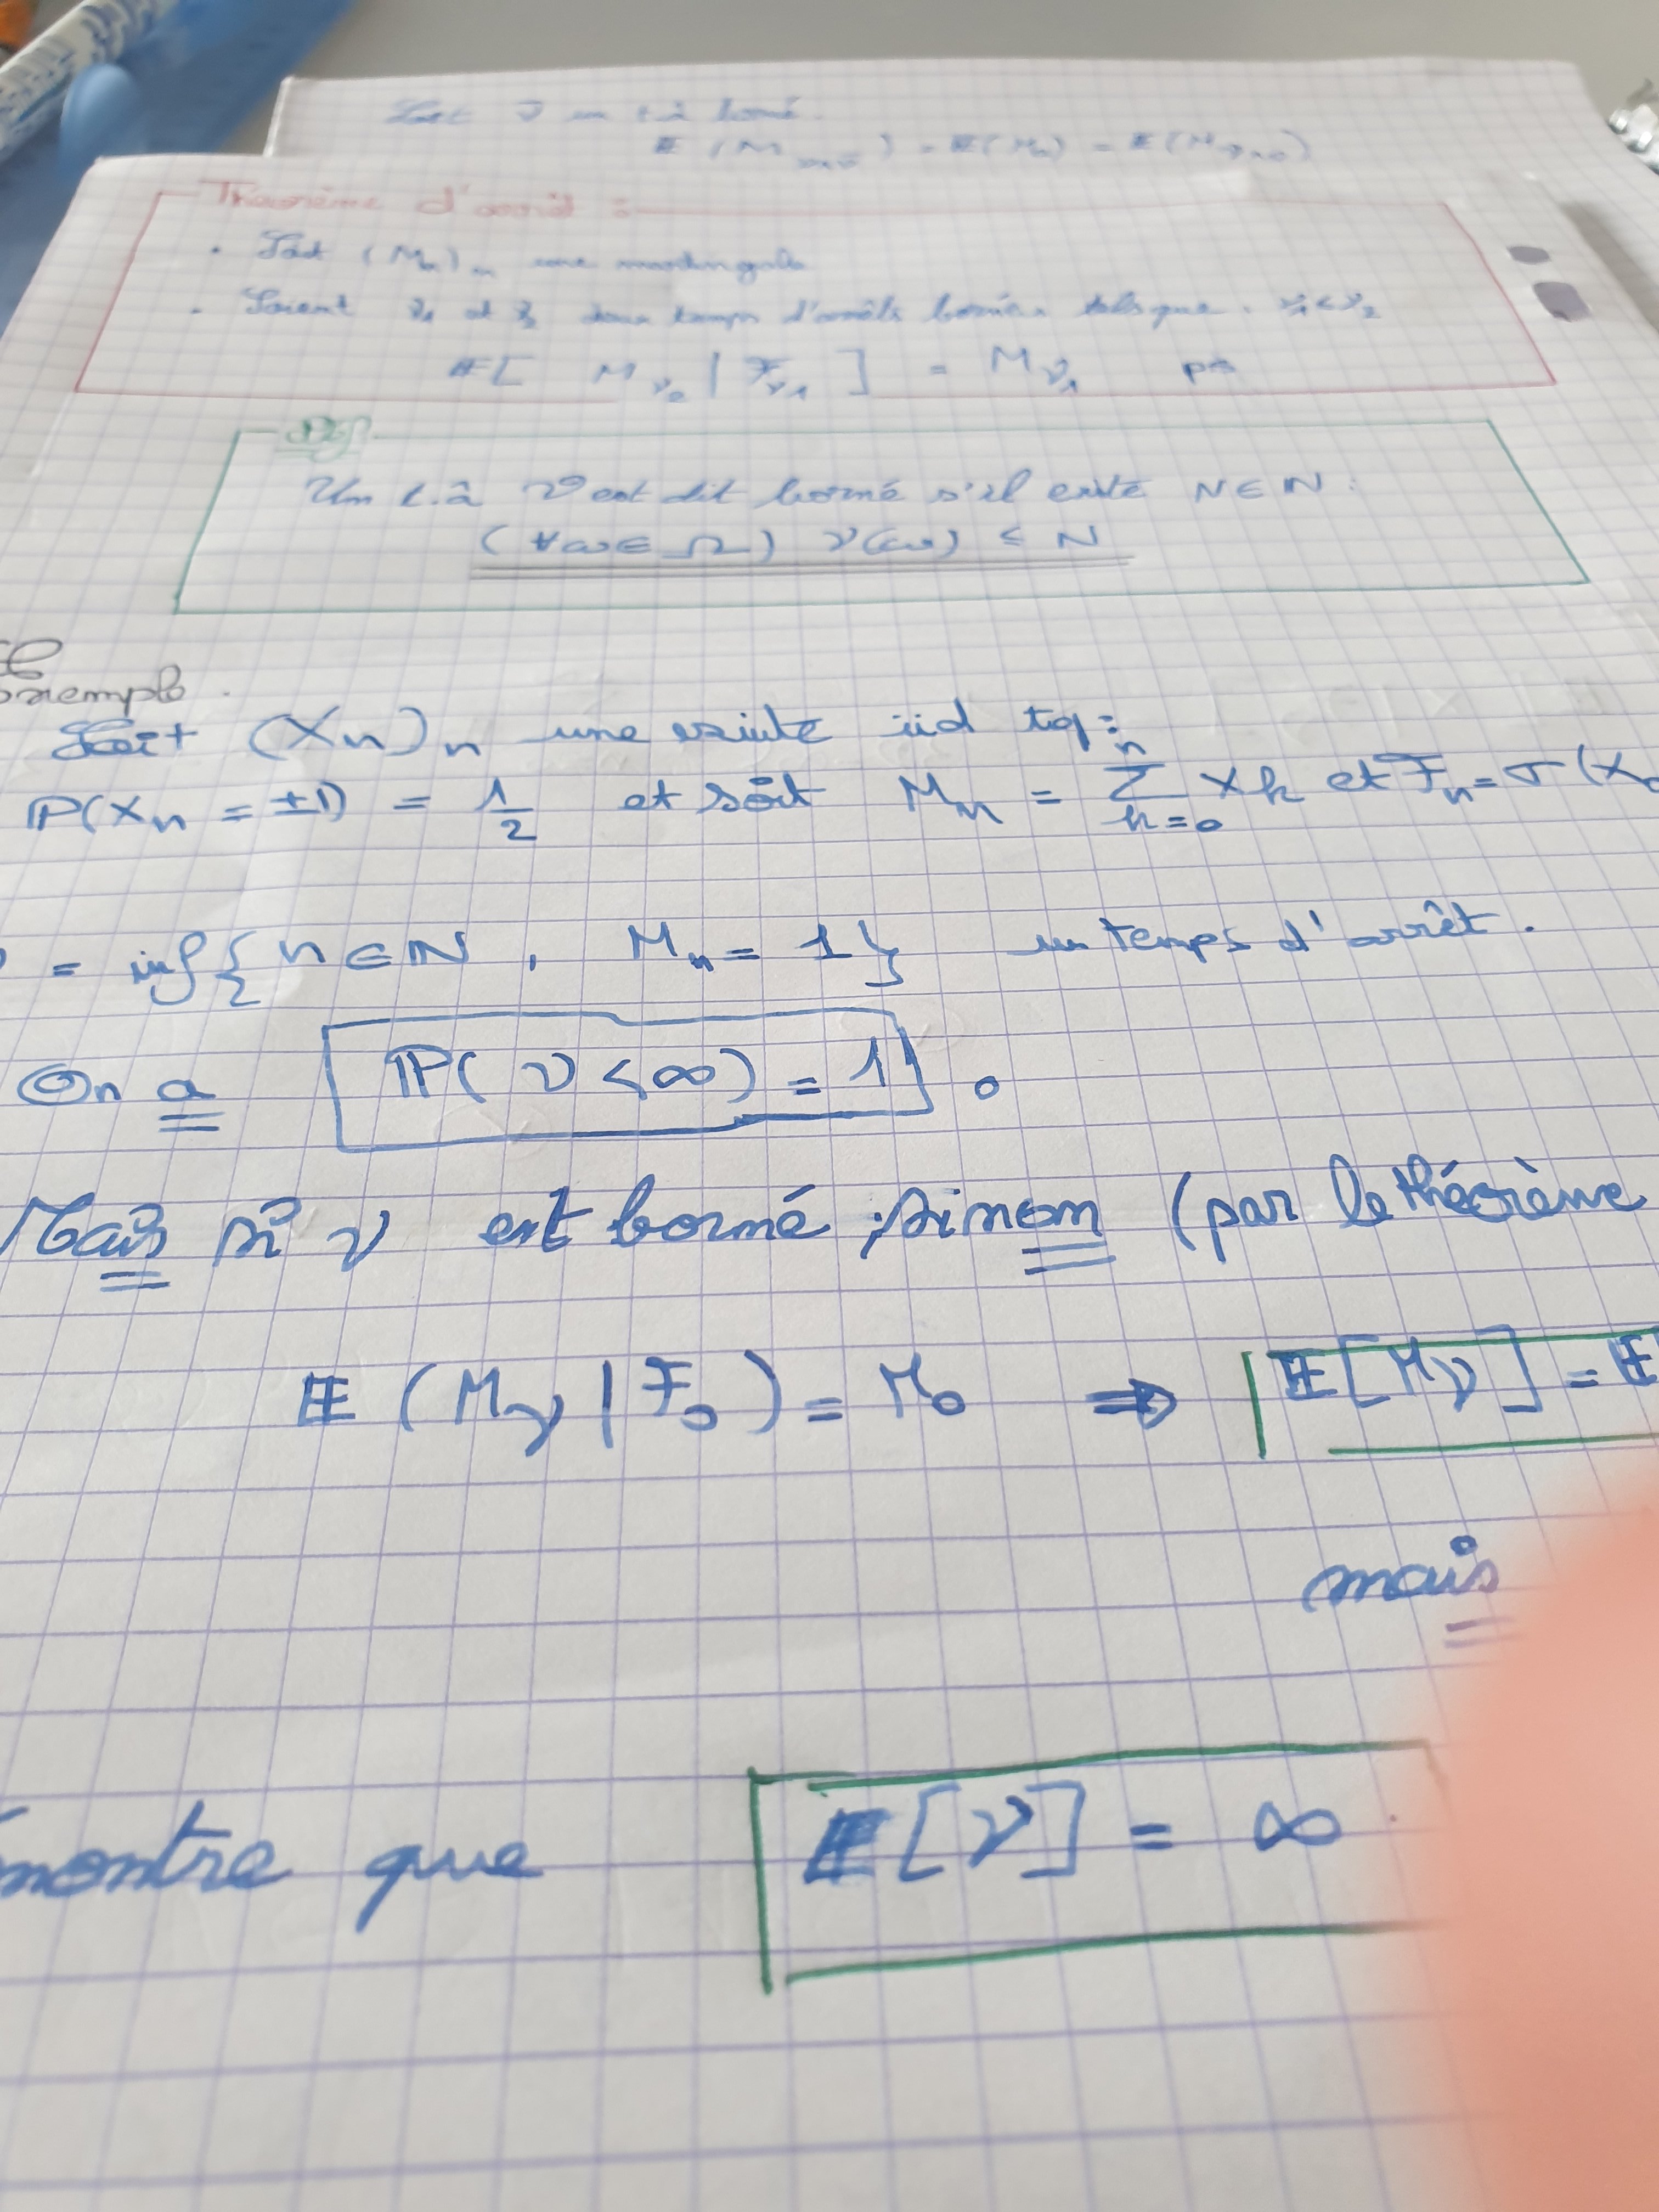 Soit ν un t.à borné.
E (M ) = E(M₀) = E(M )
Théorème d'arrêt :
• Soit (Mₙ)ₙ une martingale
• Soient ν₁ et ν₂ deux temps d'arrêts bornés tels que . ν₁ < ν₂
E[ M_ν₂ | F_ν₁ ] = M_ν₁ ps
Déf
Un t.à ν est dit borné s'il existe N ∈ ℕ :
(∀ω ∈ Ω) ν(ω) ≤ N
Exemple.
Soit (Xₙ)ₙ une suite iid tq :
P(Xₙ = ±1) = 1/2 et soit Mₙ = Σ_{k=0}^{n} X_k et Fₙ = σ(X₀
= inf{ n ∈ ℕ , Mₙ = 1 } un temps d'arrêt.
On a P( ν < ∞) = 1 .
Mais si ν est borné ; sinon (par le théorème
E (M_ν | F₀) = M₀ ⇒ E[M_ν] = E
mais
montre que E[ν] = ∞